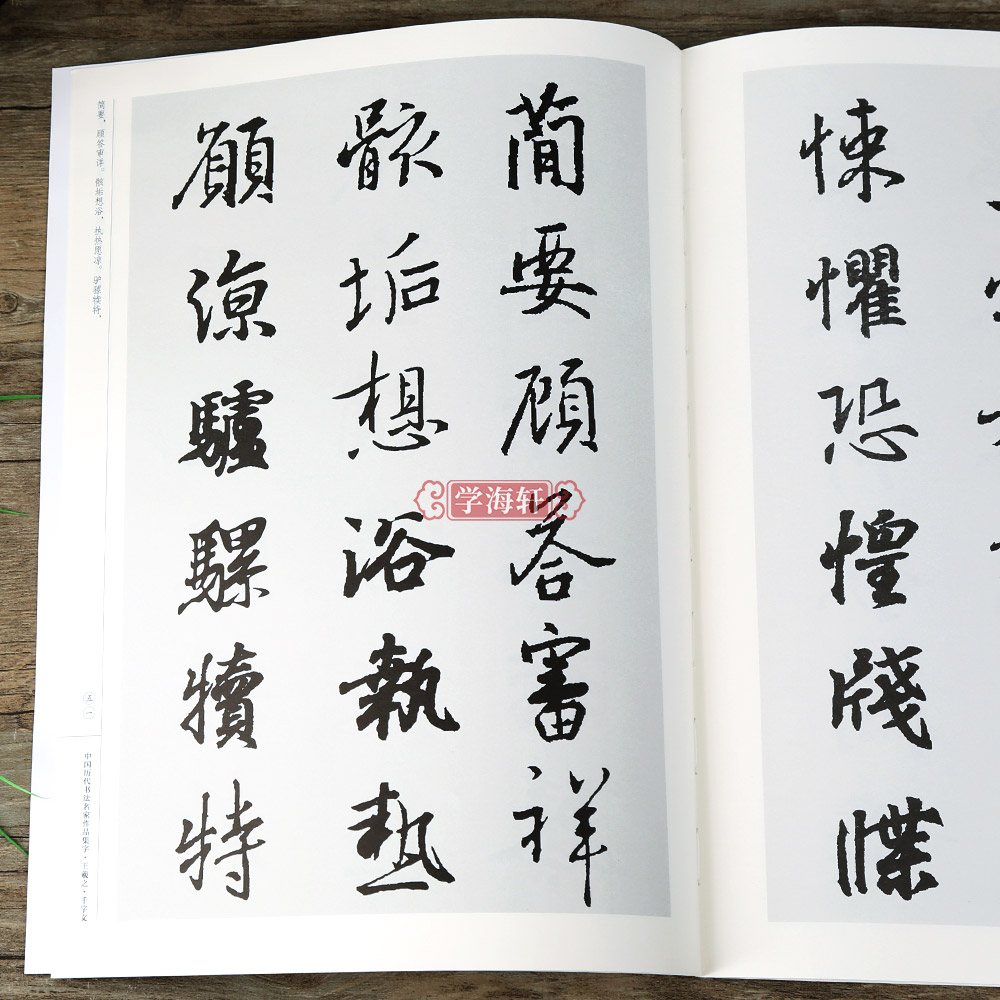 悚懼恐惶牋牒
簡要顧荅審祥
骸垢想浴執熱
願涼驢騾犢特
简要，顾答审详。骸垢想浴，执热愿凉。驴骡犊特，
五一
中国历代书法名家作品集字·王羲之·千字文
学海轩